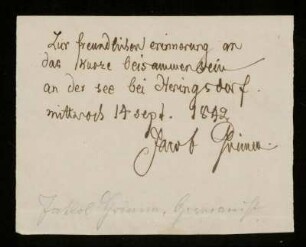 Zur freundlichen erinnerung an
das kurze beisammensein
an der see bei Heringsdorf.
mittwoch 14 sept. 1842
Jacob Grimm.
Jakob Grimm, Germanist